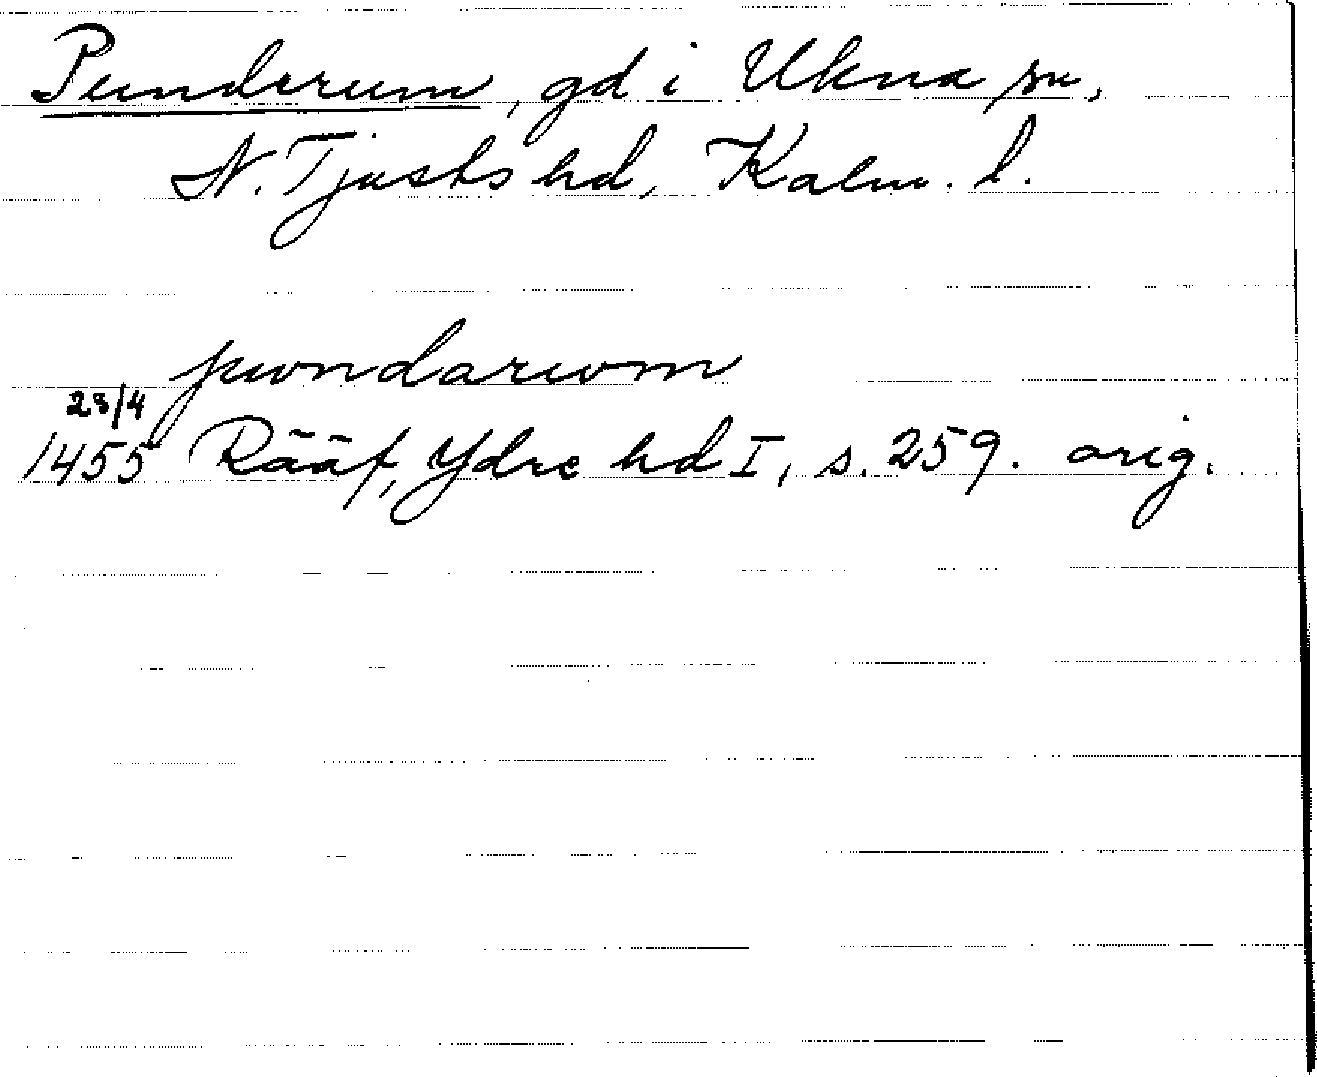 Punderum, gd i Ukna sn,
N. Tjusts hd, Kalm. l.
pwndarwm
23/4
1455 Rääf, Ydre hd I, s. 259. orig.